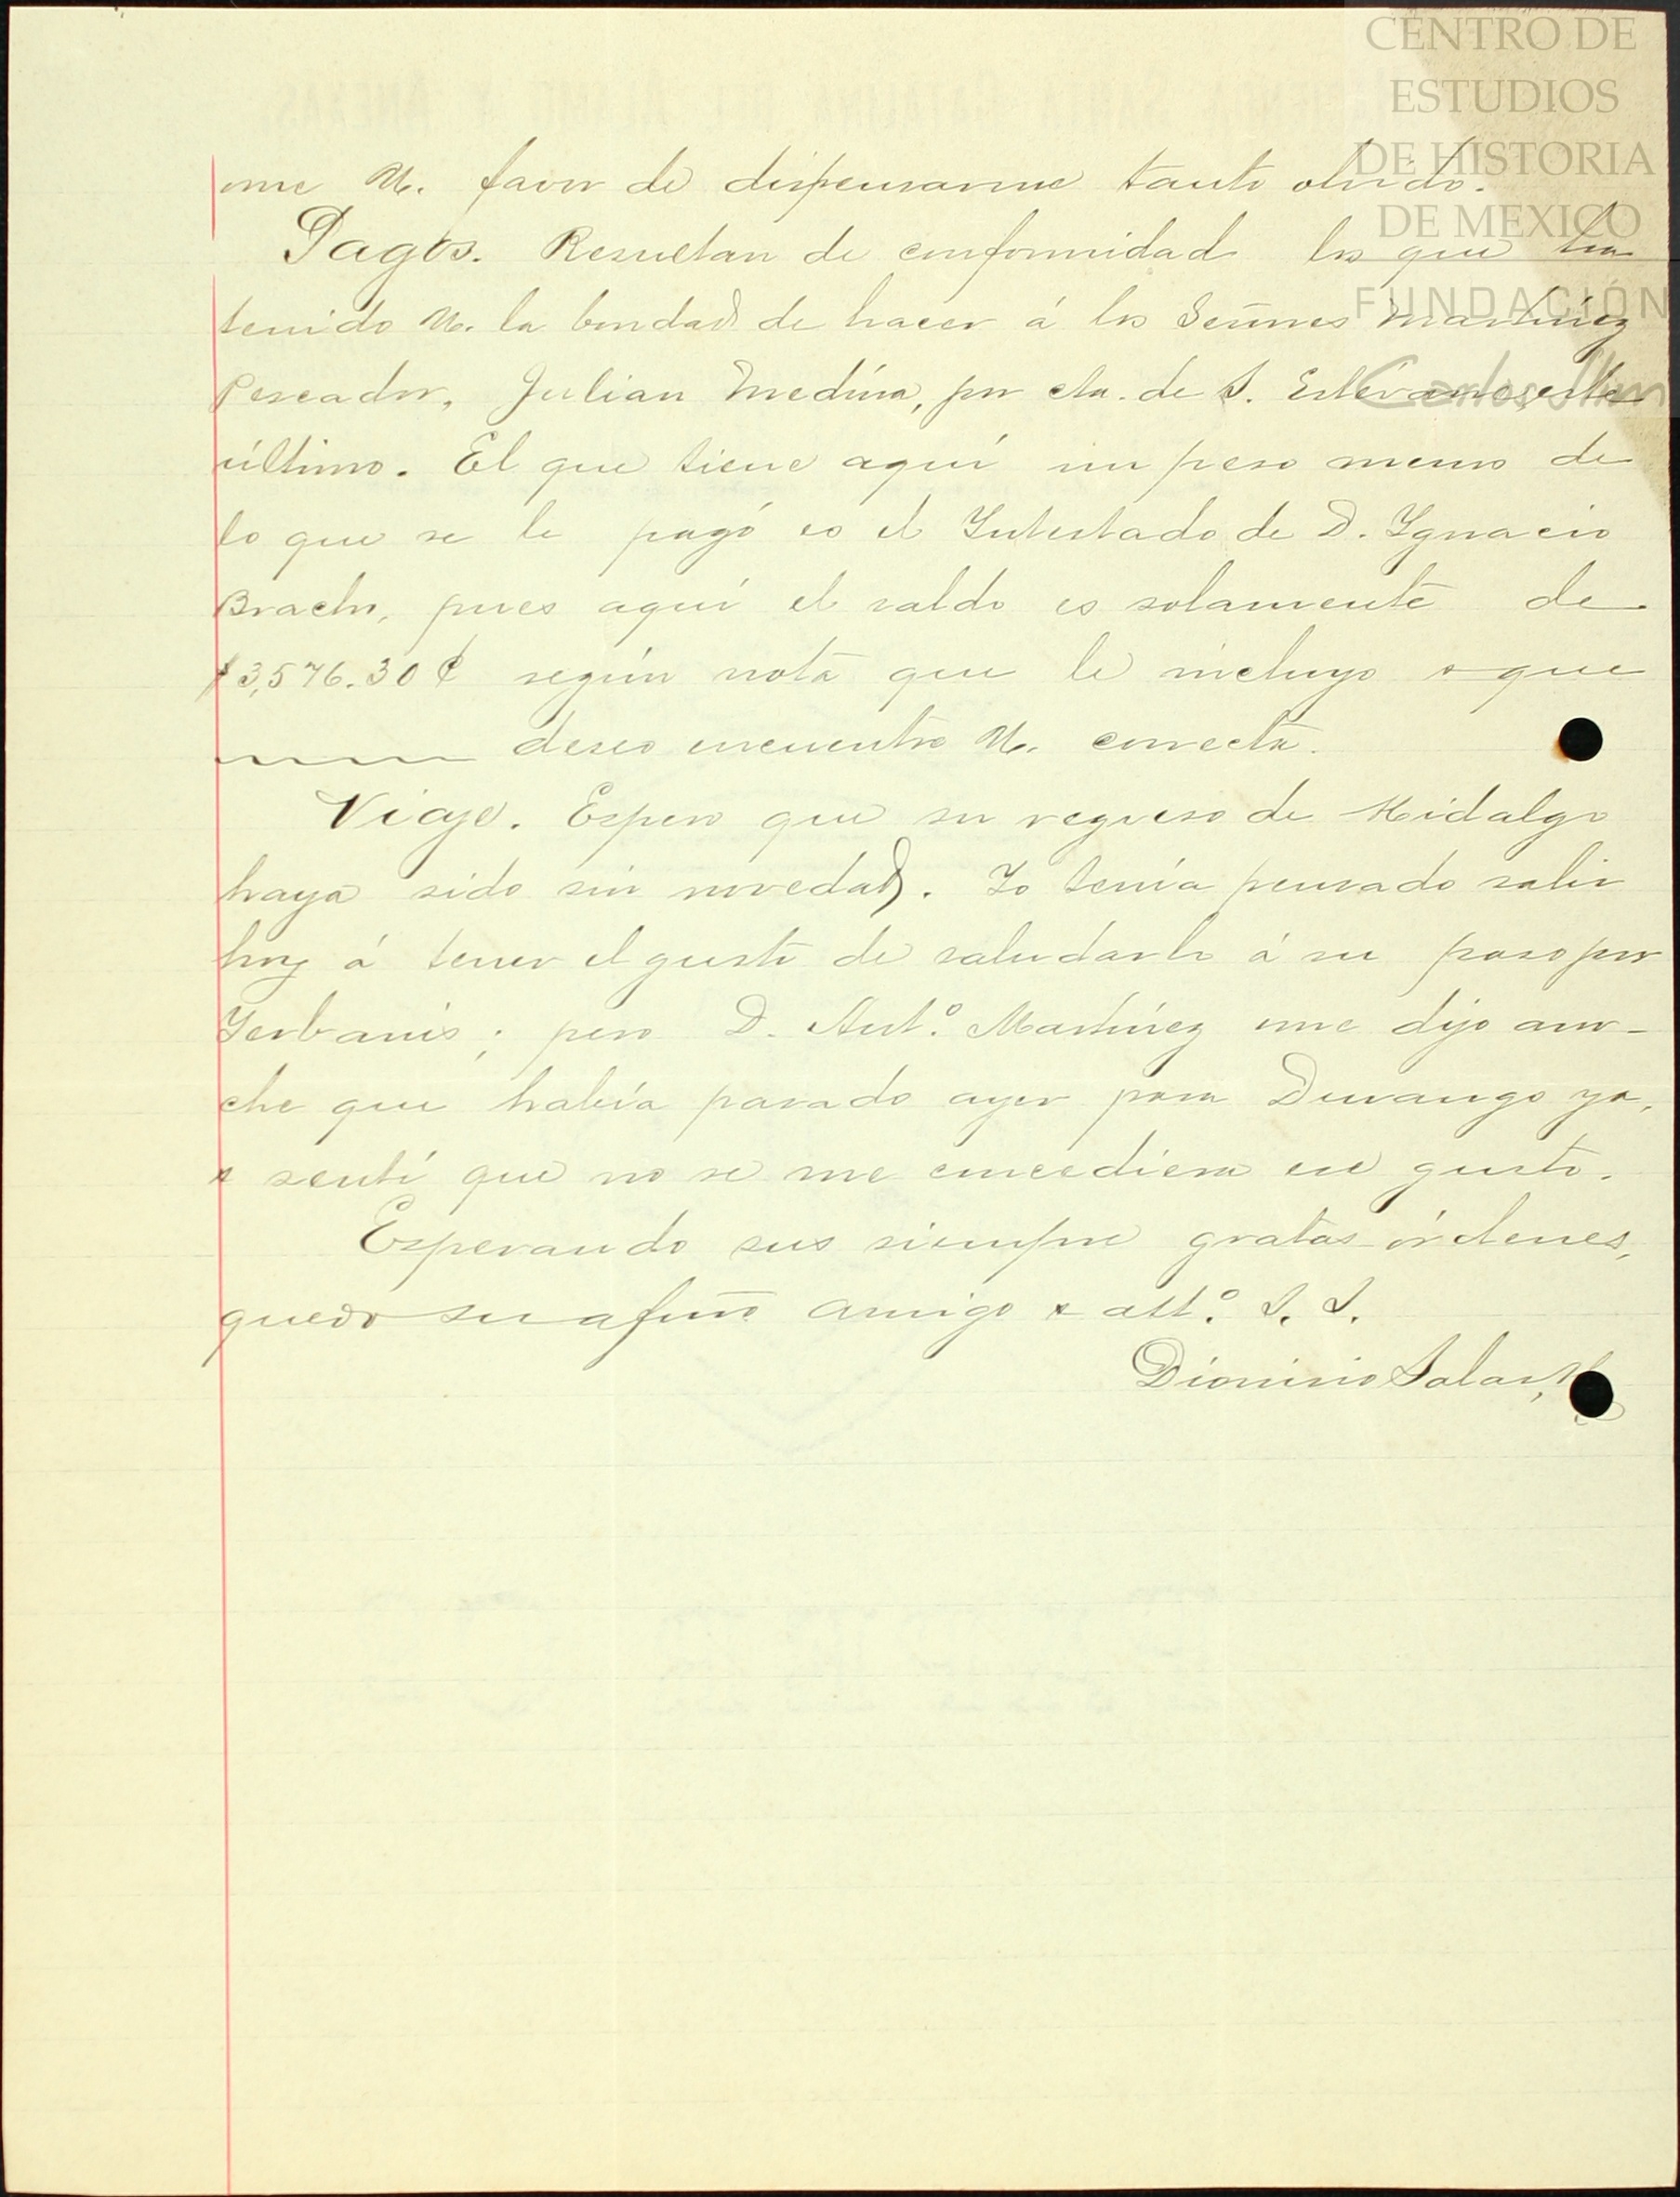 CENTRO DE
ESTUDIOS
DE HISTORIA
DE MEXICO
FUNDACIÓN
Carlos Slim
me U. favor de dispensarme tanto olvido.
Pagos. Resultan de conformidad los que ha
tenido U. la bondad de hacer á los Señores Martínez
Pescador, Julian Medina, por cta. de S. Estévanez este
último. El que tiene aquí un peso menos de
lo que se le pagó es el Intestado de D. Ygnacio
Bracho, pues aquí el saldo es solamente de
$3,576.30 ¢ según nota que le incluyo y que
deseo encuentre U. correcta.
Viaje. Espero que su regreso de Hidalgo
haya sido sin novedad. Yo tenía pensado salir
hoy á tener el gusto de saludarlo á su paso por
Yerbanis; pero D. Ant.º Martínez me dijo ano-
che que había pasado ayer para Durango ya,
y sentí que no se me concediera ese gusto.
Esperando sus siempre gratas órdenes,
quedo su afmo amigo y att.º S. S.
Dionisio Salas